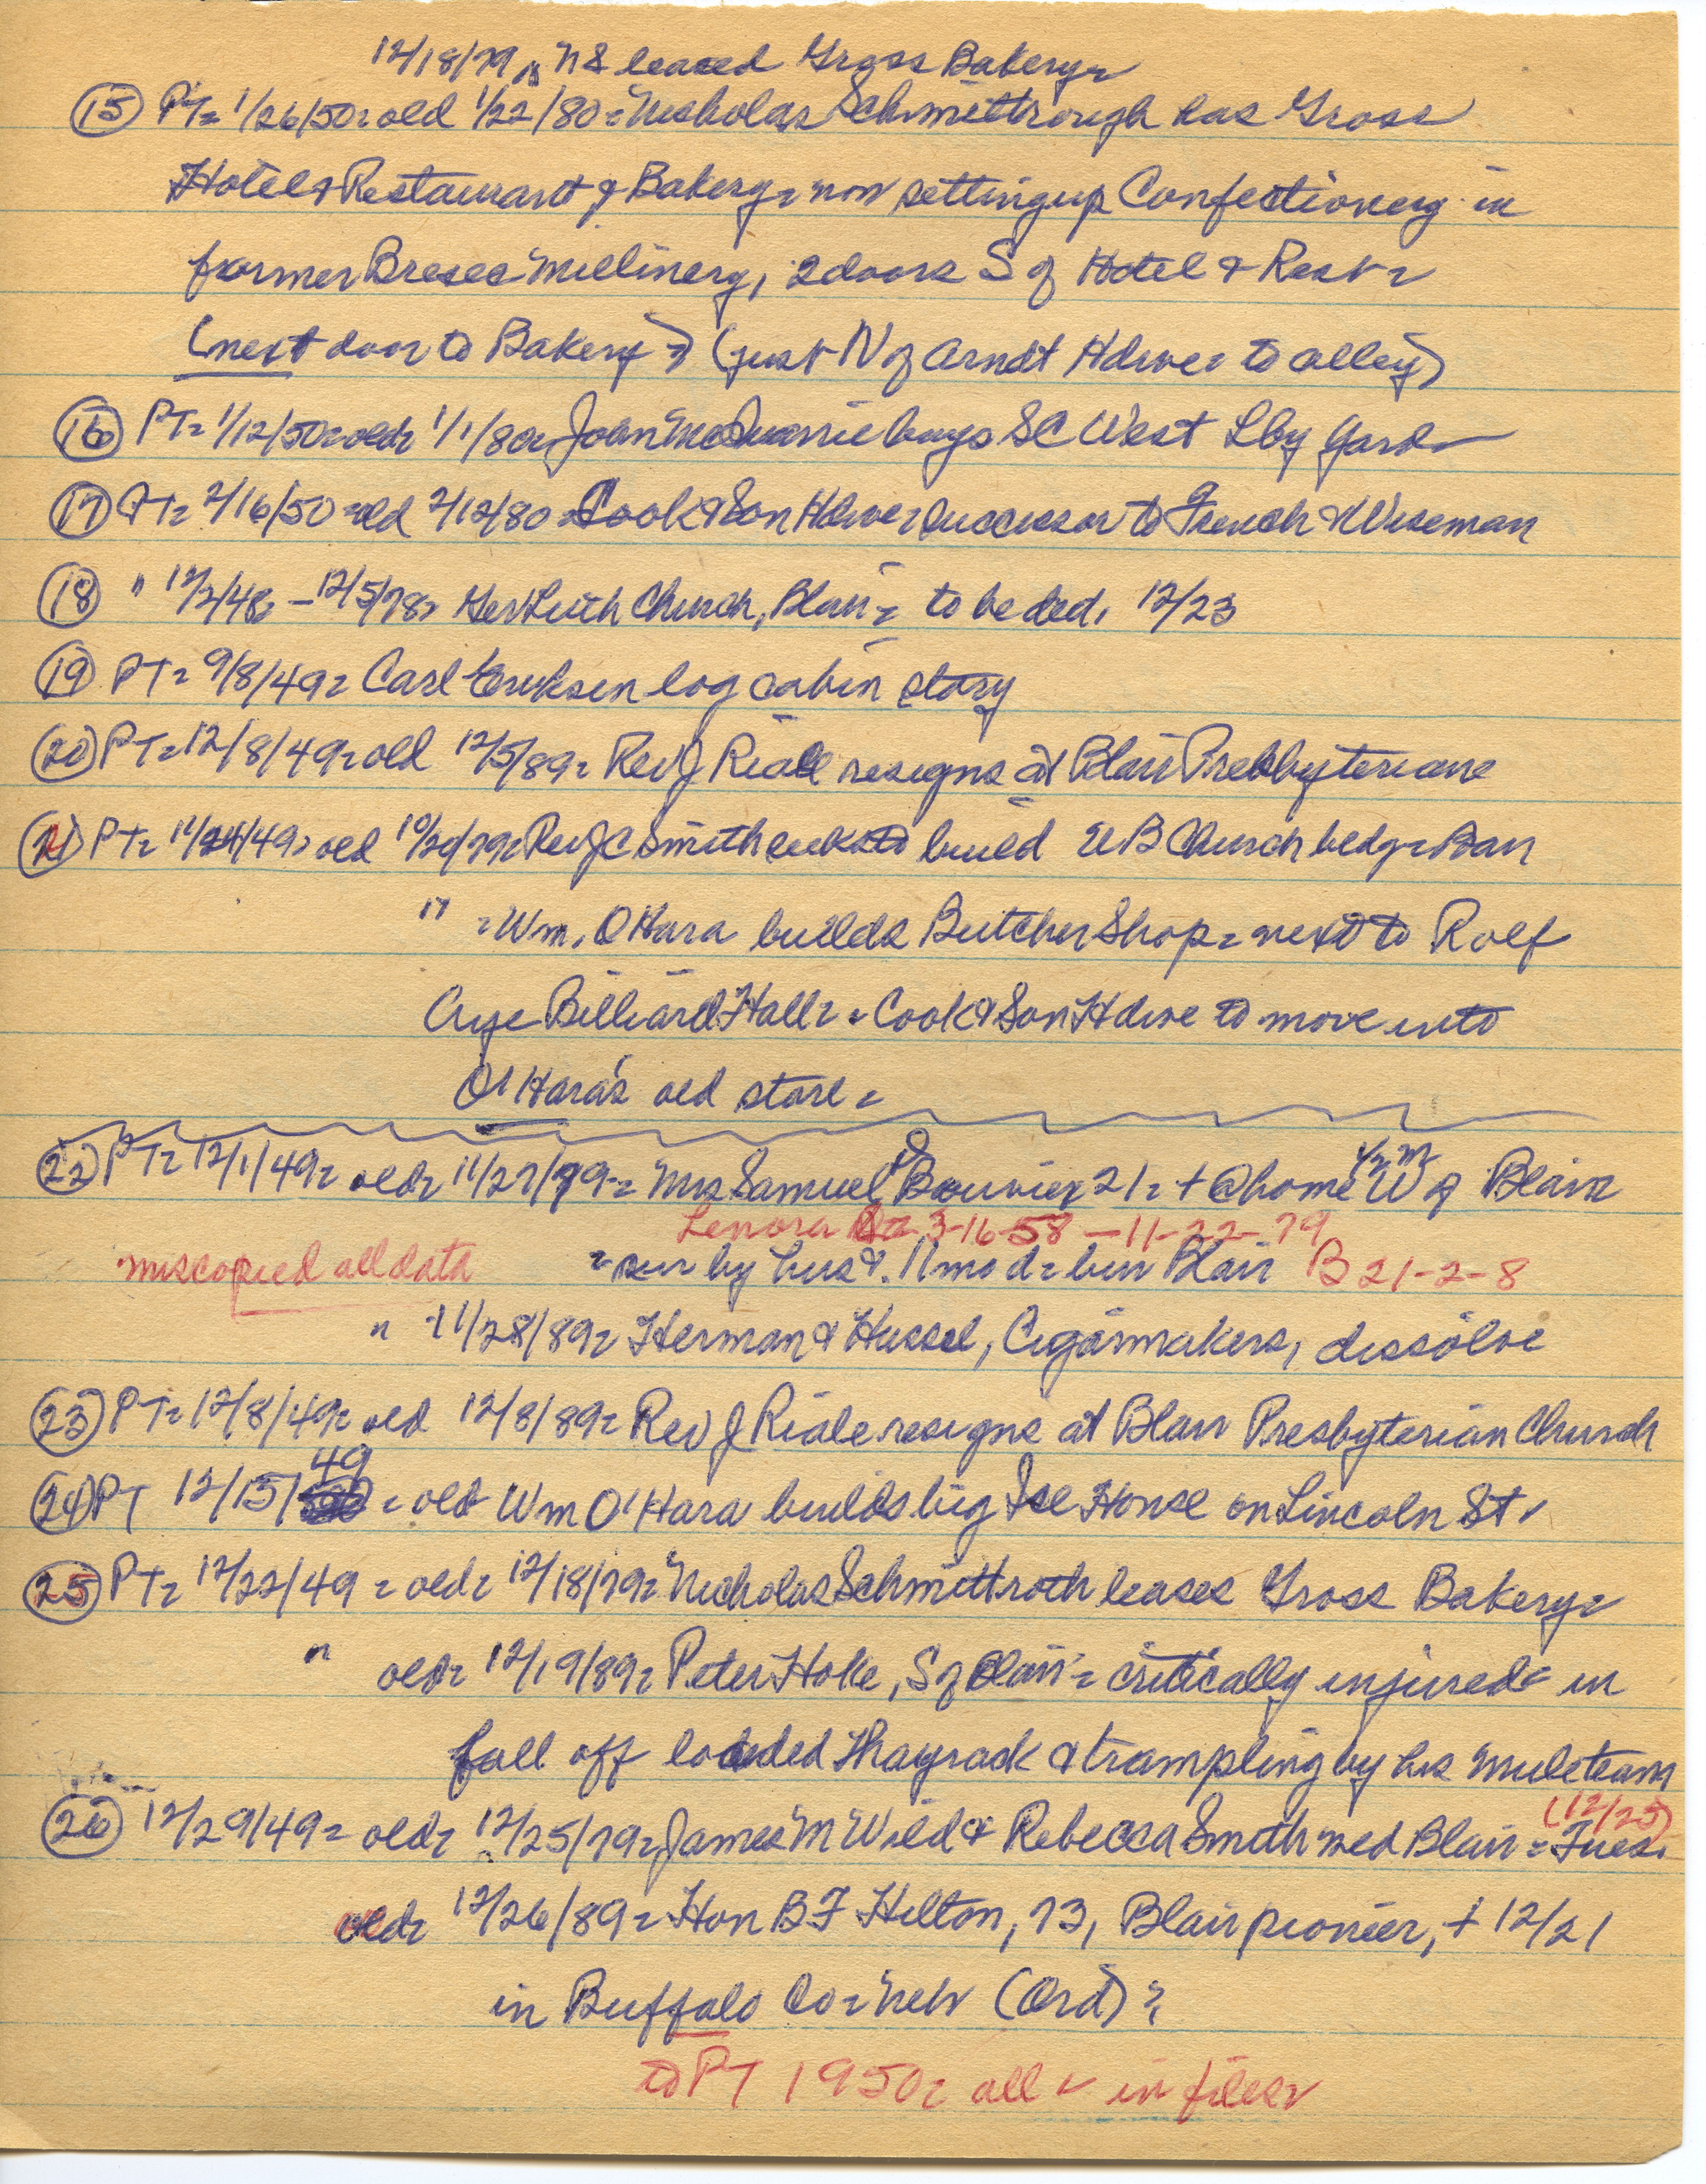 12/18/79 NS leased Gross Bakery=
(15) PT= 1/26/50= old 1/22/80= Nicholas Schmittrough has Gross
Hotel & Restaurant & Bakery= now setting up Confectionery in
former Bresee Millinery, 2 doors S of Hotel & Rest=
(next door to Bakery=) (just N of Arndt Hdwe= to alley)
(16) PT= 1/12/50= old= 1/1/80= John McQuarrie buys SC West Lby Yard
(17) PT= 2/16/50= old 2/12/80= Cook & Son Hdwe= successor to French & Wiseman
(18) " 12/2/48= – 12/5/78= Ger Luth Church, Blair= to be ded. 12/23
(19) PT= 9/8/49= Carl Eriksen log cabin story
(20) PT= 12/8/49= old 12/5/89= Rev J Riale resigns at Blair Presbyterians
(21) PT= 11/24/49= old 10/20/79= Rev JC Smith to build UB Church bldg=
" = Wm. O'Hara builds Butcher Shop= next to Rolf
Cryc Billiard Hall= = Cook & Son Hdwe to move into
O'Hara's old store=
(22) PT= 12/1/49= old= 11/27/79= Mrs Samuel S Bouvier 21= + @ home 4½ m W of Blair=
Lenora 3-16-58 – 11-22-79
miscopied all data = sur by hus &. 11 mo d= bur Blair B 21-2-8
" 11/28/89= Herman & Hussel, Cigarmakers, dissolve
(23) PT= 12/8/49= old 12/8/89= Rev J Riale resigns at Blair Presbyterian Church
(24) PT 12/15/49 = old Wm O'Hara builds big Ice House on Lincoln St=
(25) PT= 12/22/49 = old= 12/18/79= Nicholas Schmittroth leases Gross Bakery=
" old= 12/19/89= Peter Hoke, S of Blair= critically injured= in
fall off loaded Hayrack & trampling by his mule team
(26) 12/29/49= old= 12/25/79= James M Wild & Rebecca Smith wed Blair= Tues. (12/23)
old= 12/26/89= Hon B F Hilton, 73, Blair pioneer, + 12/21
in Buffalo Co= Neb= (Ord)=
to PT 1950= all ✓ in files=